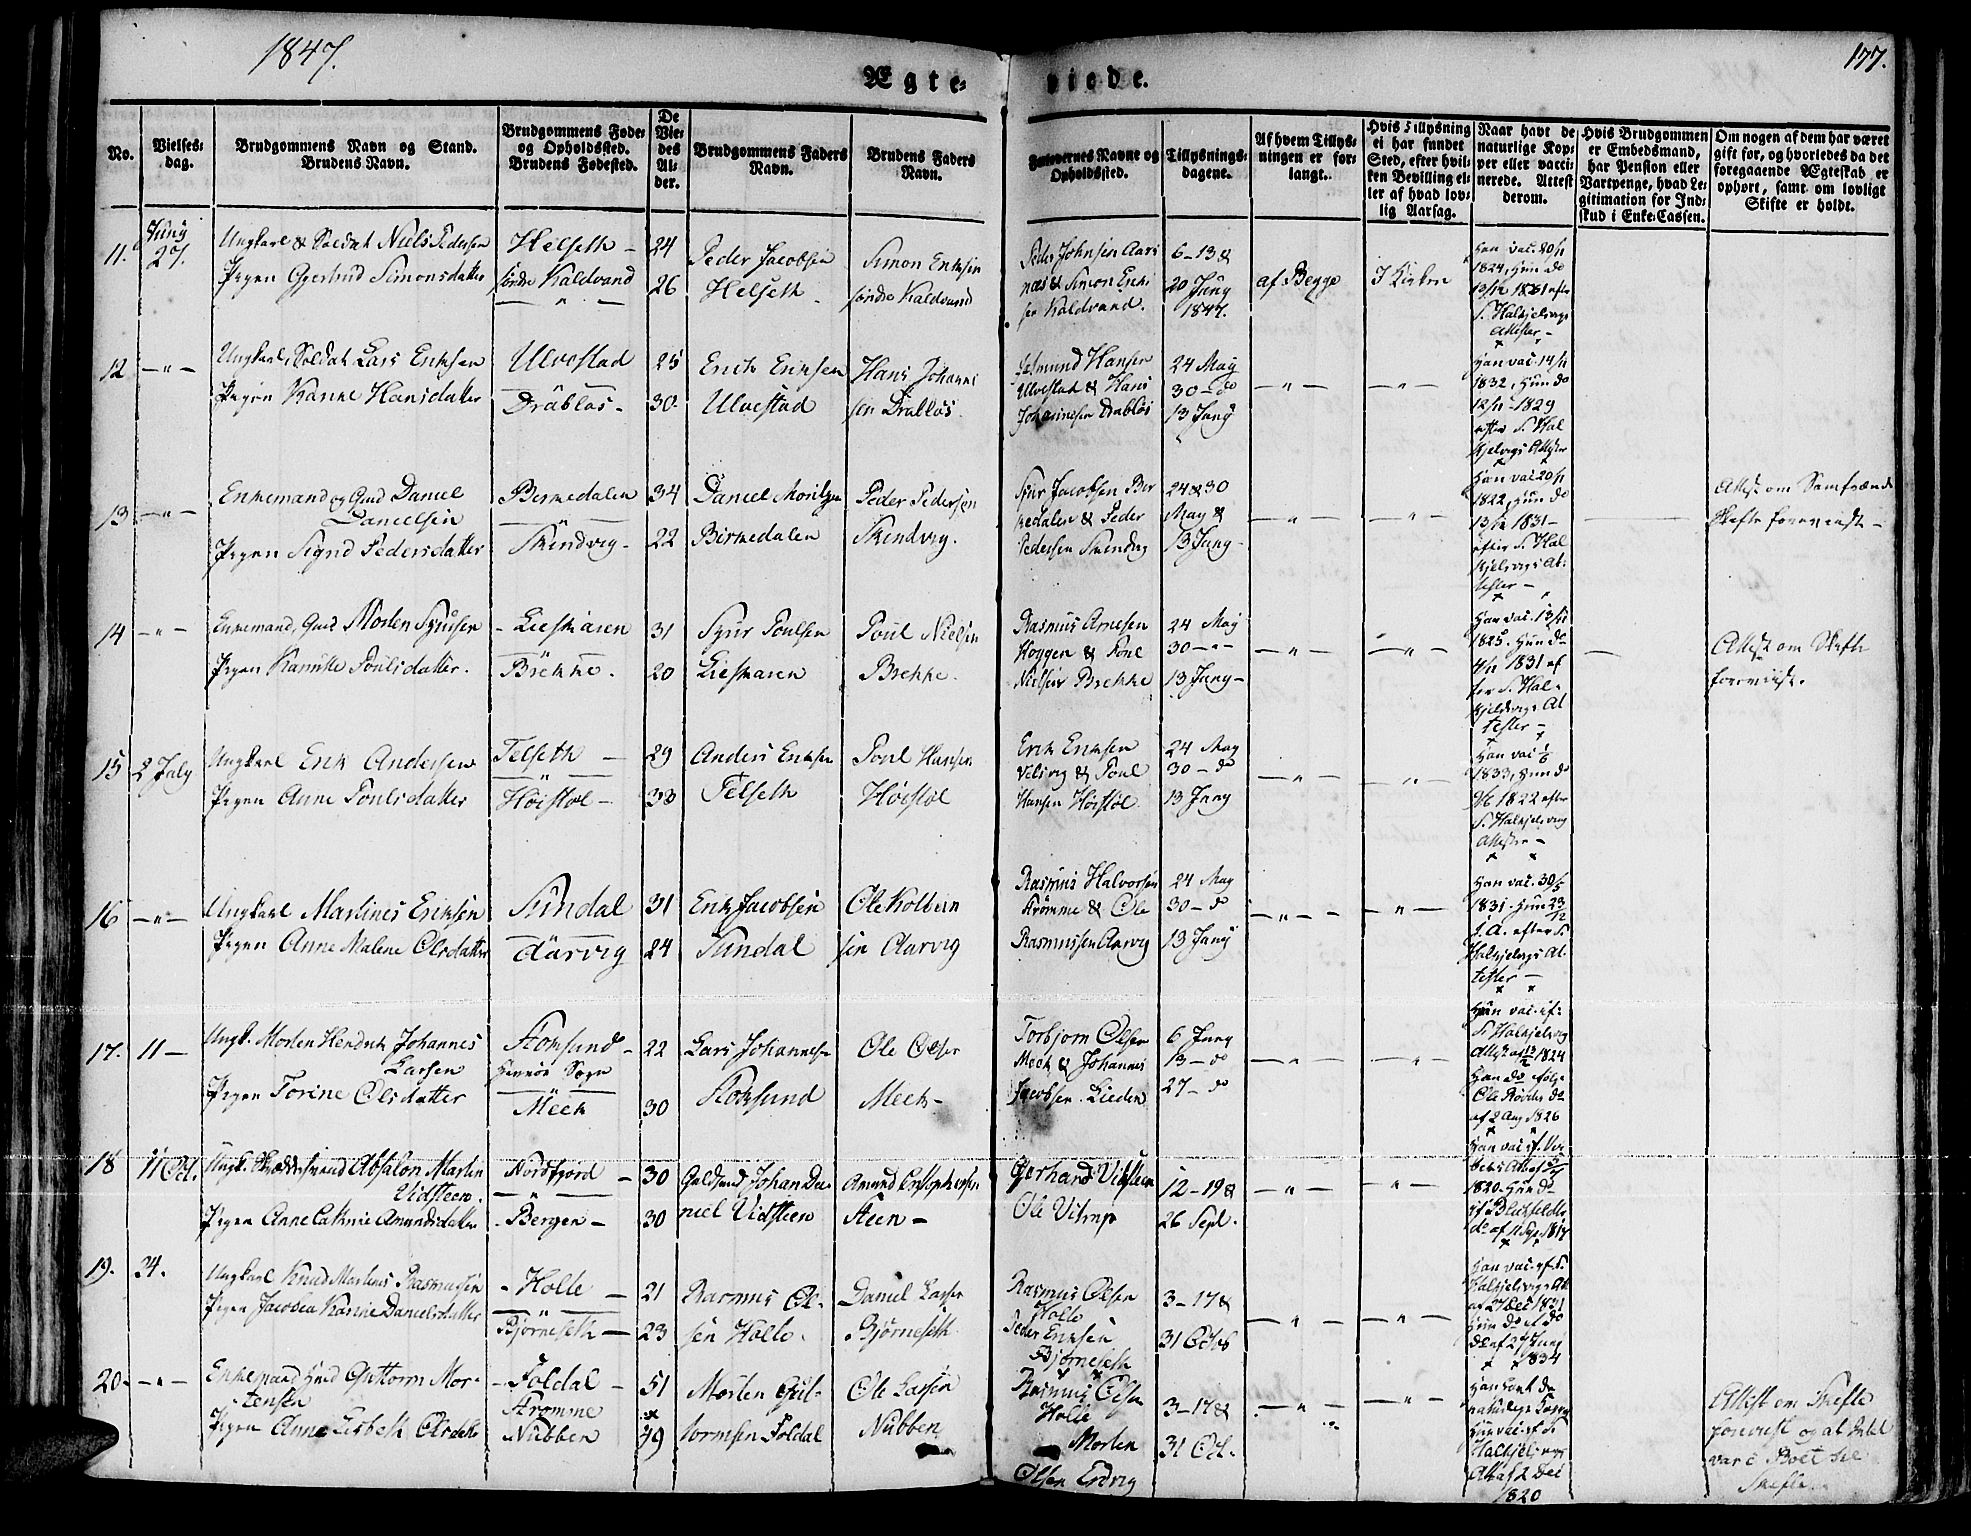 1847.
177.
Ægte-
viede.
No.
Vielses-
dag.
Brudgommens Navn og Stand.
Brudens Navn.
Brudgommens Føde-
og Opholdssted.
Brudens Fødested.
De
Vie-
des
Al-
der.
Brudgommens Faders
Navn.
Brudens Faders
Navn.
Forlovernes Navne og
Opholdssted.
Tillysnings-
dagene.
Af hvem Tillys-
ningen er for-
langt.
Hvis Tillysning
ei har fundet
Sted, efter hvil-
ken Bevilling el-
ler af hvad lov-
lig Aarsag.
Naar havt de
naturlige Kop-
per eller vacci-
nerede. Attest
derom.
Hvis Brudgommen
er Embedsmand,
har Pension eller
Vartpenge, hvad Le-
gitimation for Ind-
skud i Enke-Cassen.
Om nogen af dem har været
gift før, og hvorledes da det
foregaaende Ægteskab er
ophørt, samt om lovligt
Skifte er holdt.
11.
Juny
27.
Ungkarl & Soldat Niels Pedersen
Pigen Gjertrud Simonsdatter
Helseth -
søndre Kaldvand
24
26
Peder Jacobsen
Helseth
Simon Eriksen
søndre Kaldvand
Peder Johnsen Aars
næs & Simon Erik
sen Kaldvand.
6-13 &
20 Juny
1847.
af Begge
I Kirken
Han vac. 20/11
1824, Hun do
13/12 1821 efter
S. Halkjelsvigs
Attester -
12
- " -
Ungkarl, Soldat Lars Eriksen
Pigen Hanne Hansdatter
Ulvestad
Drabløs -
25
30
Erich Eriksen
Ulvestad
Hans Johanne
sen Drabløs.
Hansen
Ulvestad & Hans
Johannesen Drabløs
24 May
30 - do
13 Juny
- " -
- " -
Han vac. 14/11
1832, Hun do
12/11 - 1829
efter S. Hal
kjelsvigs Attester
13
- " -
Enkemand og Gmd Daniel
Danielsen
Pigen Signe Pedersdatter
Birkedalen
Skindvig -
34
22
Daniel
Birkedalen
Peder Pedersen
Skindvig.
Sjur Jacobsen Bir
kedalen & Peder
Pedersen Skindvig
24 & 30
May &
13 Juny -
- " -
- " -
Han vac 20/11
1822, Hun do
13/12 1831 -
efter S. Hal
kjelsvigs At-
tester -
Attest om Samfrænde
Skifte foreviist -
14
- " -
Enkemand, Gmd Morten Sjursen
Pigen Poulsdatter.
- Lieskaren
Brekke.
31
20
Sjur Poulsen
Lieskaren
Poul Nielsen
Brekke.
Rasmus Arnesen
Koppen & Poul
Nielsen Brekke
24 May
30 - " -
13 Juny -
- " -
- " -
Han vac. 13/11
1825. Hun do
4/12 1831 ef
ter S. Hal-
kjelsvigs At
tester -
Attest om Skifte
foreviist.
15
2 July
Ungkarl Erik Andersen
Pigen Anne Poulsdatter
Telseth -
Høistøl -
29
33
Anders Eriksen
Telseth
Poul Hansen
Høistøl
Erik Eriksen
Velsvig & Poul
Hansen Høistøl
24 May
30 - do
13 Juny
- " -
- " -
Han vac
1833, Hun do
1822 efter
S. Halkjelsvig
Attester -
16
- " -
Ungkarl Martines Eriksen
Pigen Anne Malene Olsdatter
Sundal
Aarvig
31
24
Erik Jacobsen
Sundal
Ole Kolbein
sen Aarvig
Rasmus Halvorsen
Krømme & Ole
Rasmussen Aarvig
24 May
30 - do
13 Juny
- " -
- " -
Han vac. 30/5
1831. Hun 23/12
s. A. efter S.
Halkjelsvigs At-
tester -
17.
11 -
Ungk. Morten Hendrik Johannes
Larsen
Pigen Torine Olsdatter
Stoksund -
Herrøe Sogn
Meek
22
30
Lars Johannesen
Stoksund
Ole Olsen
Meek -
Torbjørn Olsen
Meek & Johannes
Jacobsen Lieden
6 Juny
13 - do
27 - do
- " -
- " -
Hun vac. ef.
S. Halkjelsvig
Attest af 1824
Han do følge
Ole Røvdes do
af 2 Aug 1826
18
11 Oct.
Ungk. Absalon Martin
Vidsteen.
Pigen Anne Cathrine Amundsdatter
Nordfjord -
- Bergen -
30
30
Johan Da-
niel Vidsteen
Amund
Steen -
Gerhard Vidsteen
Ole
12 - 19 &
26 Sept.
- " -
- " -
Han vac. ef.
1820. Hun do
19.
24.
Ungkarl Knud Martinus Rasmussen
Pigen Jacobea Karine Danielsdatter
- Holte -
Bjørneseth -
21
23
Rasmus Ol-
sen Holte.
Daniel Larsen
Bjørneseth
Rasmus Olsen
Holte
Peder Eriksen
Bjørneseth
3 - 17 &
31 Octob
- " -
- " -
Han vac. ef. S.
Halkjelsvigs Att
af 27 Dec 1831
Hun do ef do
do af 27 Juny
1834
20.
- " -
Enkemand Gmd Guttorm Mor-
tensen
Pigen Anne Lisbeth Olsdatter
- Foldal -
Strømme
Nubben
51
49
Morten Gut-
tormsen Foldal
Ole Larsen
Nubben
Rasmus Olsen
Holte
Morten
Olsen Ervig
3 - 17 &
31 Oct.
- " -
- " -
Han havt de
naturlige
Hun vac. ef S
Halkjelsvigs
Att af 2 Dec
1820
Attest om Skifte
foreviist og at Intet
var i Boet til
Skifte.